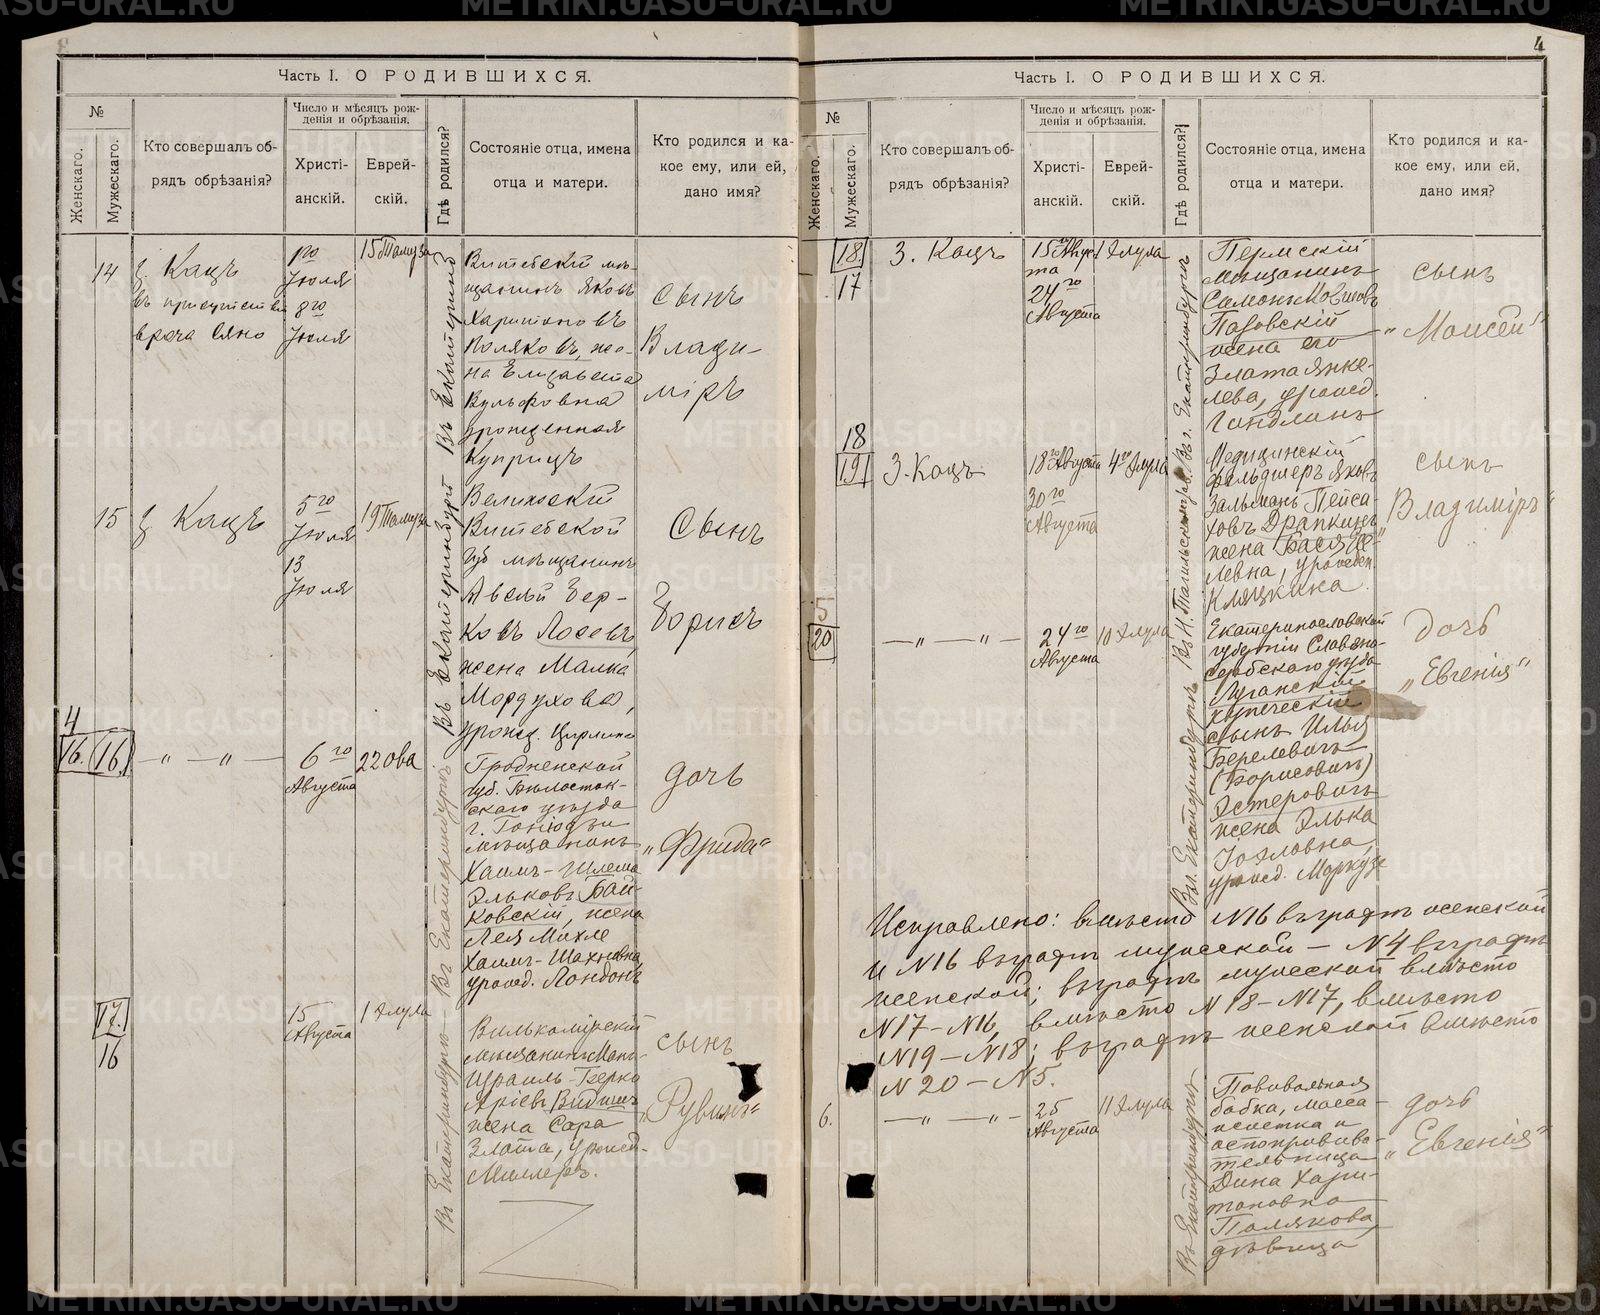 METRIKI.GASO-URAL.RU
4
Часть I. О РОДИВШИХСЯ.
№
Женскаго.
Мужескаго.
Кто совершалъ об-
рядъ обрѣзанія?
Число и мѣсяцъ рож-
денія и обрѣзанія.
Христі-
анскій.
Еврей-
скій.
Гдѣ родился?
Состояніе отца, имена
отца и матери.
Кто родился и ка-
кое ему, или ей,
дано имя?
14
З. Кацъ
въ присутствіи
врача Сяно
1го
Іюля
8го
Іюля
15 Тамуза
Въ Екатеринб
Витебскій мѣ-
щанинъ Яковъ
Харитоновъ
Поляковъ, же-
на Елизавета
Вульфовна
урожденная
Куприцъ
сынъ
Влади-
міръ
15
З. Кацъ
5го
Іюля
13
Іюля
19 Тамуза
Въ Екатеринбургѣ
Велижскій
Витебской
губ мѣщанинъ
Авсѣй Бер-
ковъ Лосевъ,
жена Малка
Мордухова,
урожд. Цирлина
Сынъ
Борисъ
4
16. (16.)
— „ — „ —
6го
Августа
22 Ова
Въ Екатеринбургѣ
Гродненской
губ. Бѣлосток-
скаго уѣзда
г. Гоніодзи
мѣщанинъ
Хаимъ-Шлема
Эльковъ Бай-
ковскій, жена
Лея Михле
Хаимъ-Шахновна
урожд. Лондонъ
дочь
„Фрида“
17.
16
15
Августа
1 Элула
Въ Екатеринбургѣ
Вилькомірскій
мѣщанинъ
Израиль-Герко
Аріевъ
жена Сара
Злата, урожд.
Миллеръ.
сынъ
„Рувинъ“
Часть I. О РОДИВШИХСЯ.
№
Женскаго.
Мужескаго.
Кто совершалъ об-
рядъ обрѣзанія?
Число и мѣсяцъ рож-
денія и обрѣзанія.
Христі-
анскій.
Еврей-
скій.
Гдѣ родился?
Состояніе отца, имена
отца и матери.
Кто родился и ка-
кое ему, или ей,
дано имя?
18
17
З. Кацъ
15го Авгус
та
24го
Августа
1 Элула
Въ г. Екатеринбургѣ
Пермскій
мѣщанинъ
Самонъ Мовшовъ
Пазовскій
жена его
Злата Янке-
лева, урожд.
Гандманъ
сынъ
„Моисей“
18
19
З. Кацъ
18го Августа
30го
Августа
4го Элула
Въ Н. Тагильск
Медицинскій
фельдшеръ Яковъ
Зальманъ Пейса-
ховъ Драпкинъ
жена Бася
левна, урожден.
Кляцкина
сынъ
„Владиміръ“
5
20
— „ — „ —
24го
Августа
10 Элула
Въ г. Екатеринбургѣ
Екатеринославской
губерніи Славяно-
сербскаго уѣзда
Луганскій
купеческій
сынъ Илья
Береловичъ
(Борисовичъ)
Эстеровичъ
жена Элька
Іоэловна,
урожд. Маркузе
дочь
„Евгенія“
Исправлено: вмѣсто №16 въ графѣ женской
и №16 въ графѣ мужеской — №4 въ графѣ
женской; въ графѣ мужеской вмѣсто
№17 — №16, вмѣсто №18 — №17, вмѣсто
№19 — №18; въ графѣ женской вмѣсто
№20 — №5.
6.
— „ — „ —
25
Августа
11 Элула
Въ Екатеринбургѣ
Повивальная
бабка, масса-
жистка и
оспопрививa-
тельница
Дина Хари-
тоновна
Полякова,
дѣвица
дочь
„Евгенія“